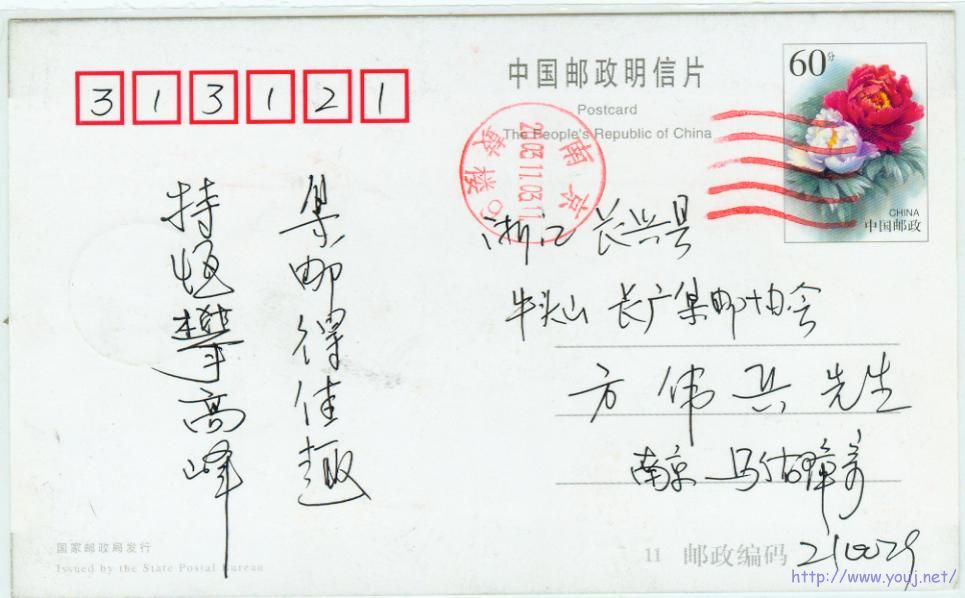 313121
中国邮政明信片
Postcard
The People's Republic of China
60分
CHINA
中国邮政
南京
2003.11.03.1
浙江 长兴县
牛头山 长广集邮协会
方伟兵先生
南京 马佑璋寄
11 邮政编码 210029
集邮得佳趣
持恒攀高峰
国家邮政局发行
Issued by the State Postal Bureau
http://www.youj.net/